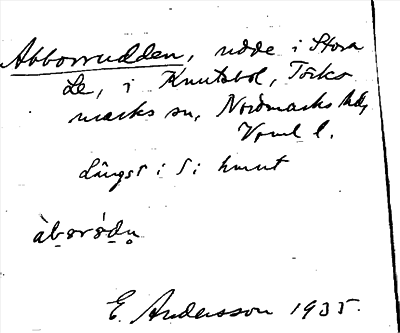 Abborrudden, udde i Stora
Le, i Knutsbol, Töcks
marks sn, Nordmarks hd,
Vrml l.
Längst i S i hmnt
àb̬ərə́du̥
E. Andersson 1935.